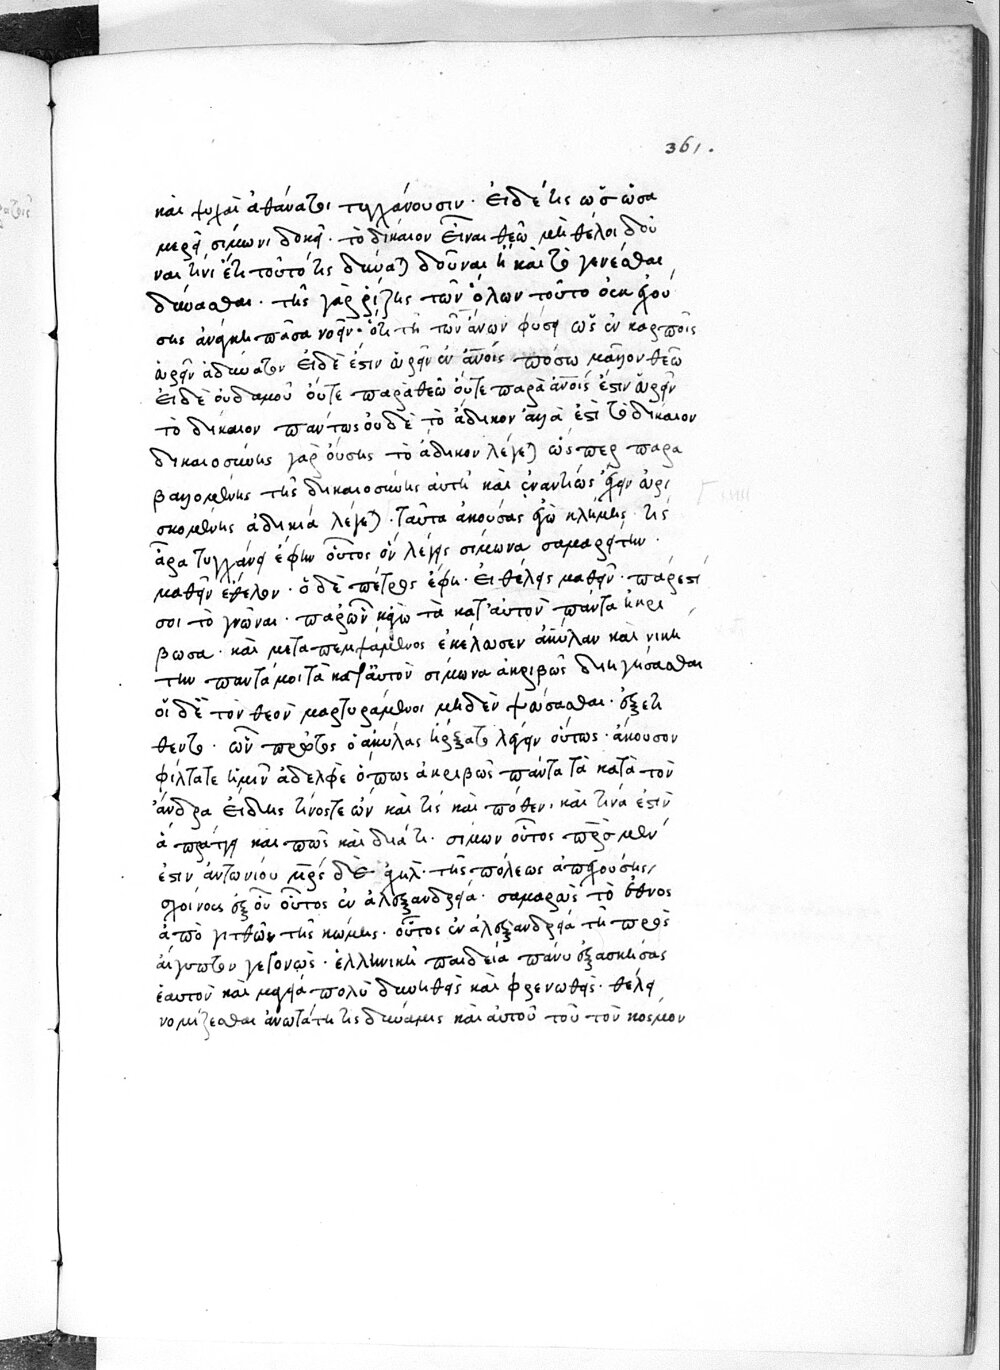 361.
καὶ ψυχαὶ ἀθάνατοι τυγχάνουσιν. εἰ δέ τις ὡς
σίμωνι δοκεῖ. τὸ δίκαιον εἶναι θεῶ μὴ θέλοι δοῦ
ναι τινὶ ἔτι τοῦτό τις δύναται δοῦναι ἢ καὶ τὸ γενέσθαι
δύνασθαι. τῆς γὰρ ῥίζης τῶν ὅλων τοῦτο οὐκ ἐχού
σης ἀνάγκη πᾶσα νοεῖν. ὅτι τῆ τῶν ἀνων φύσει ὡς ἐν καρποῖς
εὑρεῖν ἀδύνατον εἰ δὲ ἔστιν εὑρεῖν ἐν ἀνοις πόσω μᾶλλον θεῶ
εἰ δὲ οὐδαμοῦ οὔτε παρὰ θεῶ οὔτε παρὰ ἀνοις ἔστιν εὑρεῖν
τὸ δίκαιον πάντως οὐδὲ τὸ ἄδικον ἀλλὰ ἐστὶ τὸ δίκαιον
δικαιοσύνης γὰρ οὔσης τὸ ἄδικον λέγεται ὥσπερ παρα
βαλλομένης τῆς δικαιοσύνης αὐτῆ καὶ ἐναντίως ἔχειν εὑρι
σκομένης ἀδικία λέγεται. ταῦτα ἀκούσας ἐγὼ κλήμης. τίς
ἄρα τυγχάνει ἔφην οὗτος ὃν λέγεις σίμωνα σαμαρείτην.
μαθεῖν ἔθελον. ὁ δὲ πέτρος ἔφη. εἰ θέλεις μαθεῖν. πάρεστί
σοι τὸ γνῶναι. παρ' ὧν κἀγὼ τὰ κατ' αὐτὸν πάντα ἠκρί
βωσα. καὶ μεταπεμψάμενος ἐκέλευσεν ἀκύλαν καὶ νικη
την πάντα μοι τὰ κατ' αὐτὸν σίμωνα ἀκριβῶς διηγήσασθαι
οἱ δὲ τὸν θεὸν μαρτυράμενοι μηδὲν ψεύσασθαι. ἐξετι
θεντο. ὧν πρῶτος ὁ ἀκύλας ἤρξατο λέγειν οὕτως. ἄκουσον
φίλτατε ἡμῖν ἀδελφὲ ὅπως ἀκριβῶς πάντα τὰ κατὰ τὸν
ἄνδρα εἰδῆς τίνος τε ὢν καὶ τίς καὶ πόθεν. καὶ τίνα ἐστὶν
ἃ πράττει καὶ πῶς καὶ διὰ τί. σίμων οὗτος πρσ μὲν
ἐστιν ἀντωνίου μρσ δὲ. τῆς πόλεως ἀπεχούσης
σχοίνους ἐξ ὢν οὗτος ἐν ἀλεξανδρεία. σαμαρεὺς τὸ ἔθνος
ἀπὸ γιτθῶν τῆς κώμης. οὗτος ἐν ἀλεξανδρεία τῆ πρὸς
αἴγυπτον γεγονὼς. ἑλληνικῆ παιδεία πάνυ ἐξασκήσας
ἑαυτὸν καὶ μαγεία πολὺ δυνηθεὶς καὶ φρενωθεὶς. θέλει
νομίζεσθαι ἀνωτάτη τις δύναμις καὶ αὐτοῦ τοῦ τὸν κόσμον